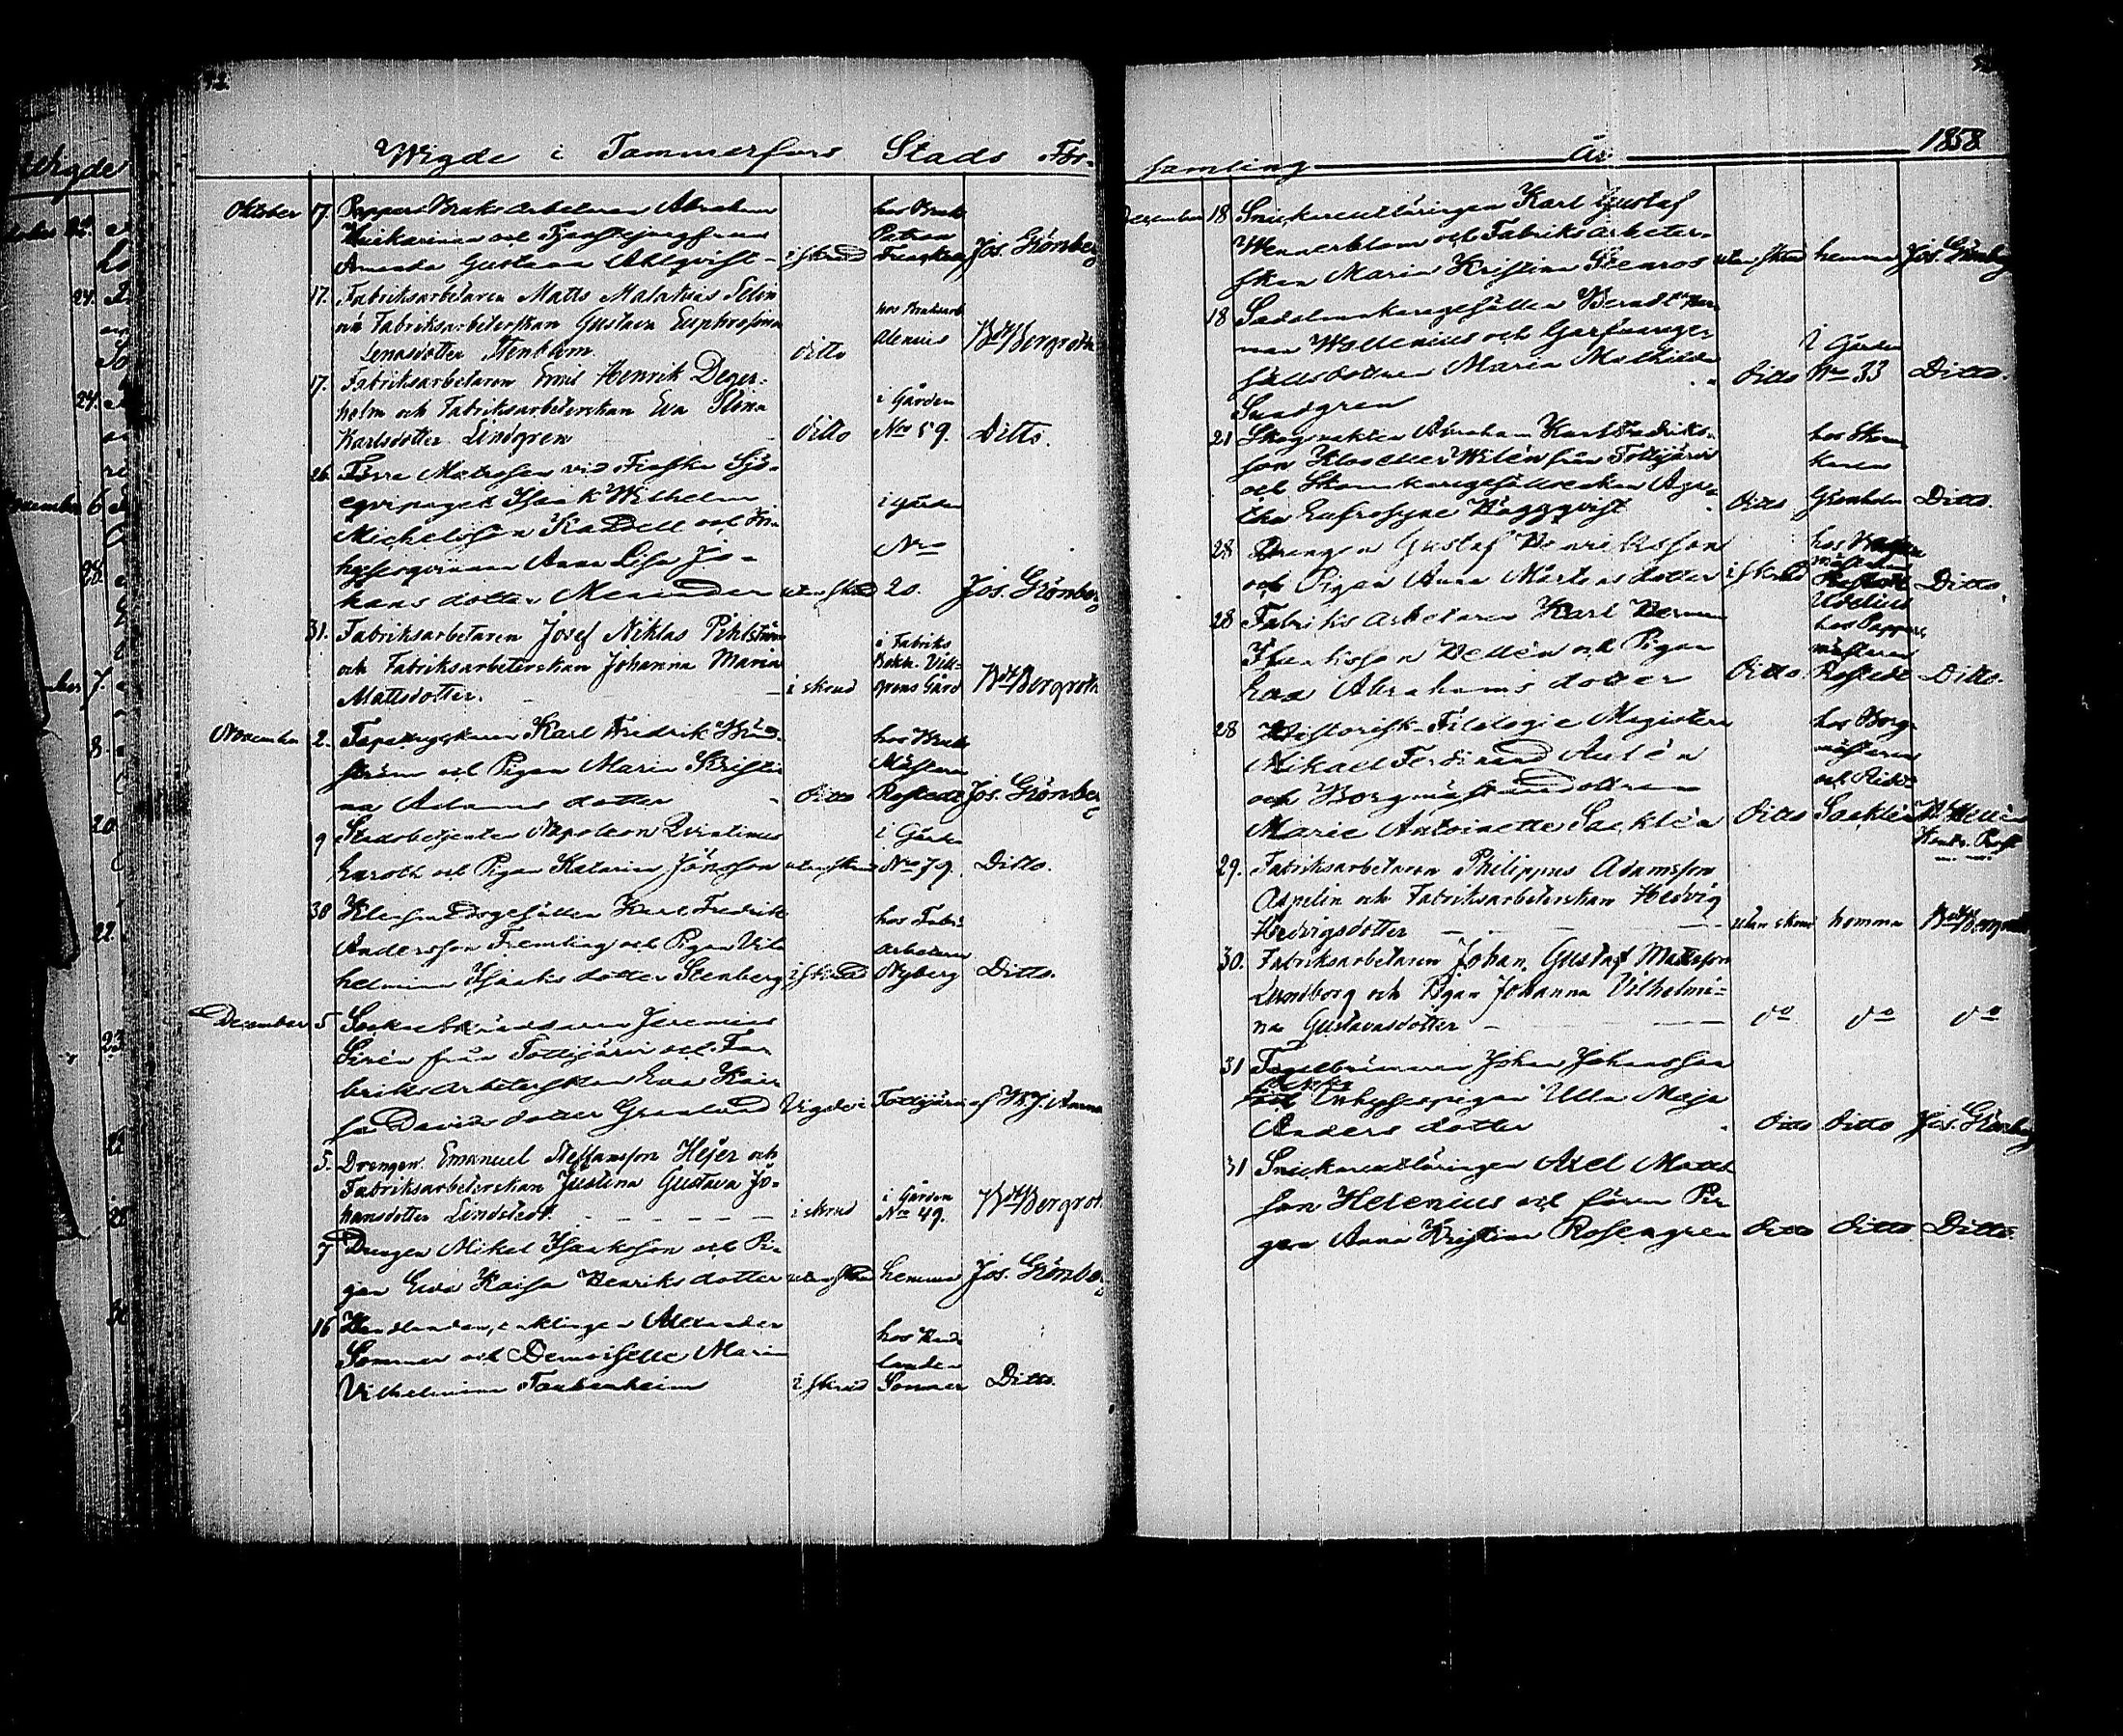 Wigde i Tammerfors Stads För-
Oktober 17. Pappers Bruks arbetaren Abraham
och Tjenstejungfrun
Amanda Gustava Ahlqvist - i skrud hos Bruks Patron Frenckell Jos. Grönberg
17. Fabriksarbetaren Matts Malakias Selin
och Fabriksarbeterskan Gustava Euphrosina
Lenasdotter Stenbom ditto hos Bruksarb Alenius Bdt Bergroth
17. Fabriksarbetaren Emil Henrik Deger-
holm och Fabriksarbeterskan Eva Stina
Karlsdotter Lindgren ditto i Gården Nro 59. Ditto.
26. Förre Matrosen vid Finska Sjö-
equipaget Isaak Wilhelm
Michelsson Kandell och In-
hyseqvinnan Anna Lisa Jo-
hans dotter Menander utan skrud i Gården Nro 20. Jos. Grönberg
31. Fabriksarbetaren Josef Niklas Pihlström
och Fabriksarbeterskan Johanna Maria
Mattsdotter. - i skrud i Fabriks Bokh. Vill- grens Gård Bdt Bergroth
November 2. Tapetryckaren Karl Fredrik
ström och Pigan Maria Kristi
na Adams dotter - ditto hos Bruks Mästaren Rostedt Jos. Grönberg
9 Stadsbetjenten Napoleon
och Pigan Katarina Jönsson utan skrud i Gården No 79. Ditto.
30 Klensmedsgesällen Karl Fredrik
Andersson Fremling och Pigan Vil
helmina Isaaks dotter Stenberg i skrud hos Fabri- Arbetaren Nyberg Ditto.
December 5 Jeremias
Sirén från Tottijärvi och Fa-
briks Arbeterskan Eva Kai
sa Davids dotter Granlund Vigde i Tottijärvi af
5. Drengen Emanuel Steffansson Hejer och
Fabriksarbeterskan Justina Gustava Jo-
hansdotter Lindstedt. i skrud i Gården Nro 49. Bdt Bergroth
7 Drengen Mikel Isaaksson och Pi-
gan Eva Kaisa Henriks dotter utan skrud hemma Jos. Grönberg
16 Handlanden, enklingen Alexander
Sommer och Demoiselle Maria
Vilhelmina Taubenheim i skrud hos Hand- landen Sommer Ditto.
samling År 1858
December 18 Snickareutläringen Karl Gustaf
Wennerblom och Fabriksarbeter-
skan Maria Kristina Stenros utan skrud hemma Jos. Grönberg
18 Sadelmakaregesällen Berndt Her-
man Wallenius och Garfvarege-
sällsdottren Maria Mathilda
Sundgren Ditto i Gården Nro 33 Ditto.
21 Skogvakten Abraham Karl Fredriks-
son Wilén från Tottijärvi
och Skomakaregesällsenkan Aga-
tha Eufrosyne Häggqvist Ditto hos Skoma- karen Grönholm Ditto.
28 Drengen Gustaf Henriksson
och Pigan Anna Mårtens dotter i skrud hos Udelius Ditto.
28 Fabriks arbetaren Karl Herman
Isaksson Hellén och Pigan
Eva Abrahams dotter Ditto. hos Pappers mästaren Rostedt Ditto.
28 Historisk-Filologie Magistern
Mikael Ferdinand Aulén
och Borgmästaredottren
Marie Antoinette Sacklén Ditto hos Borg- mästaren och Sacklén
29. Fabriksarbetaren Philippus Adamsson
Aspelin och Fabriksarbeterskan Hedvig
Hedvigsdotter - utan skrud hemma Bdt Bergroth
30. Fabriksarbetaren Johan Gustaf Mattsson
Lundborg och Pigan Johanna Vilhelmi-
na Gustavasdotter - do do do
31 Tegelbrännaren Johan Johansson
Inhysespigan Ulla Maja
Anders dotter Ditto Ditto Jos. Grönberg
31 Snickareutläringen Axel Matts
son Helenius och förra Pi-
gan Anna Kristina Rosengren Ditto Ditto. Ditto.